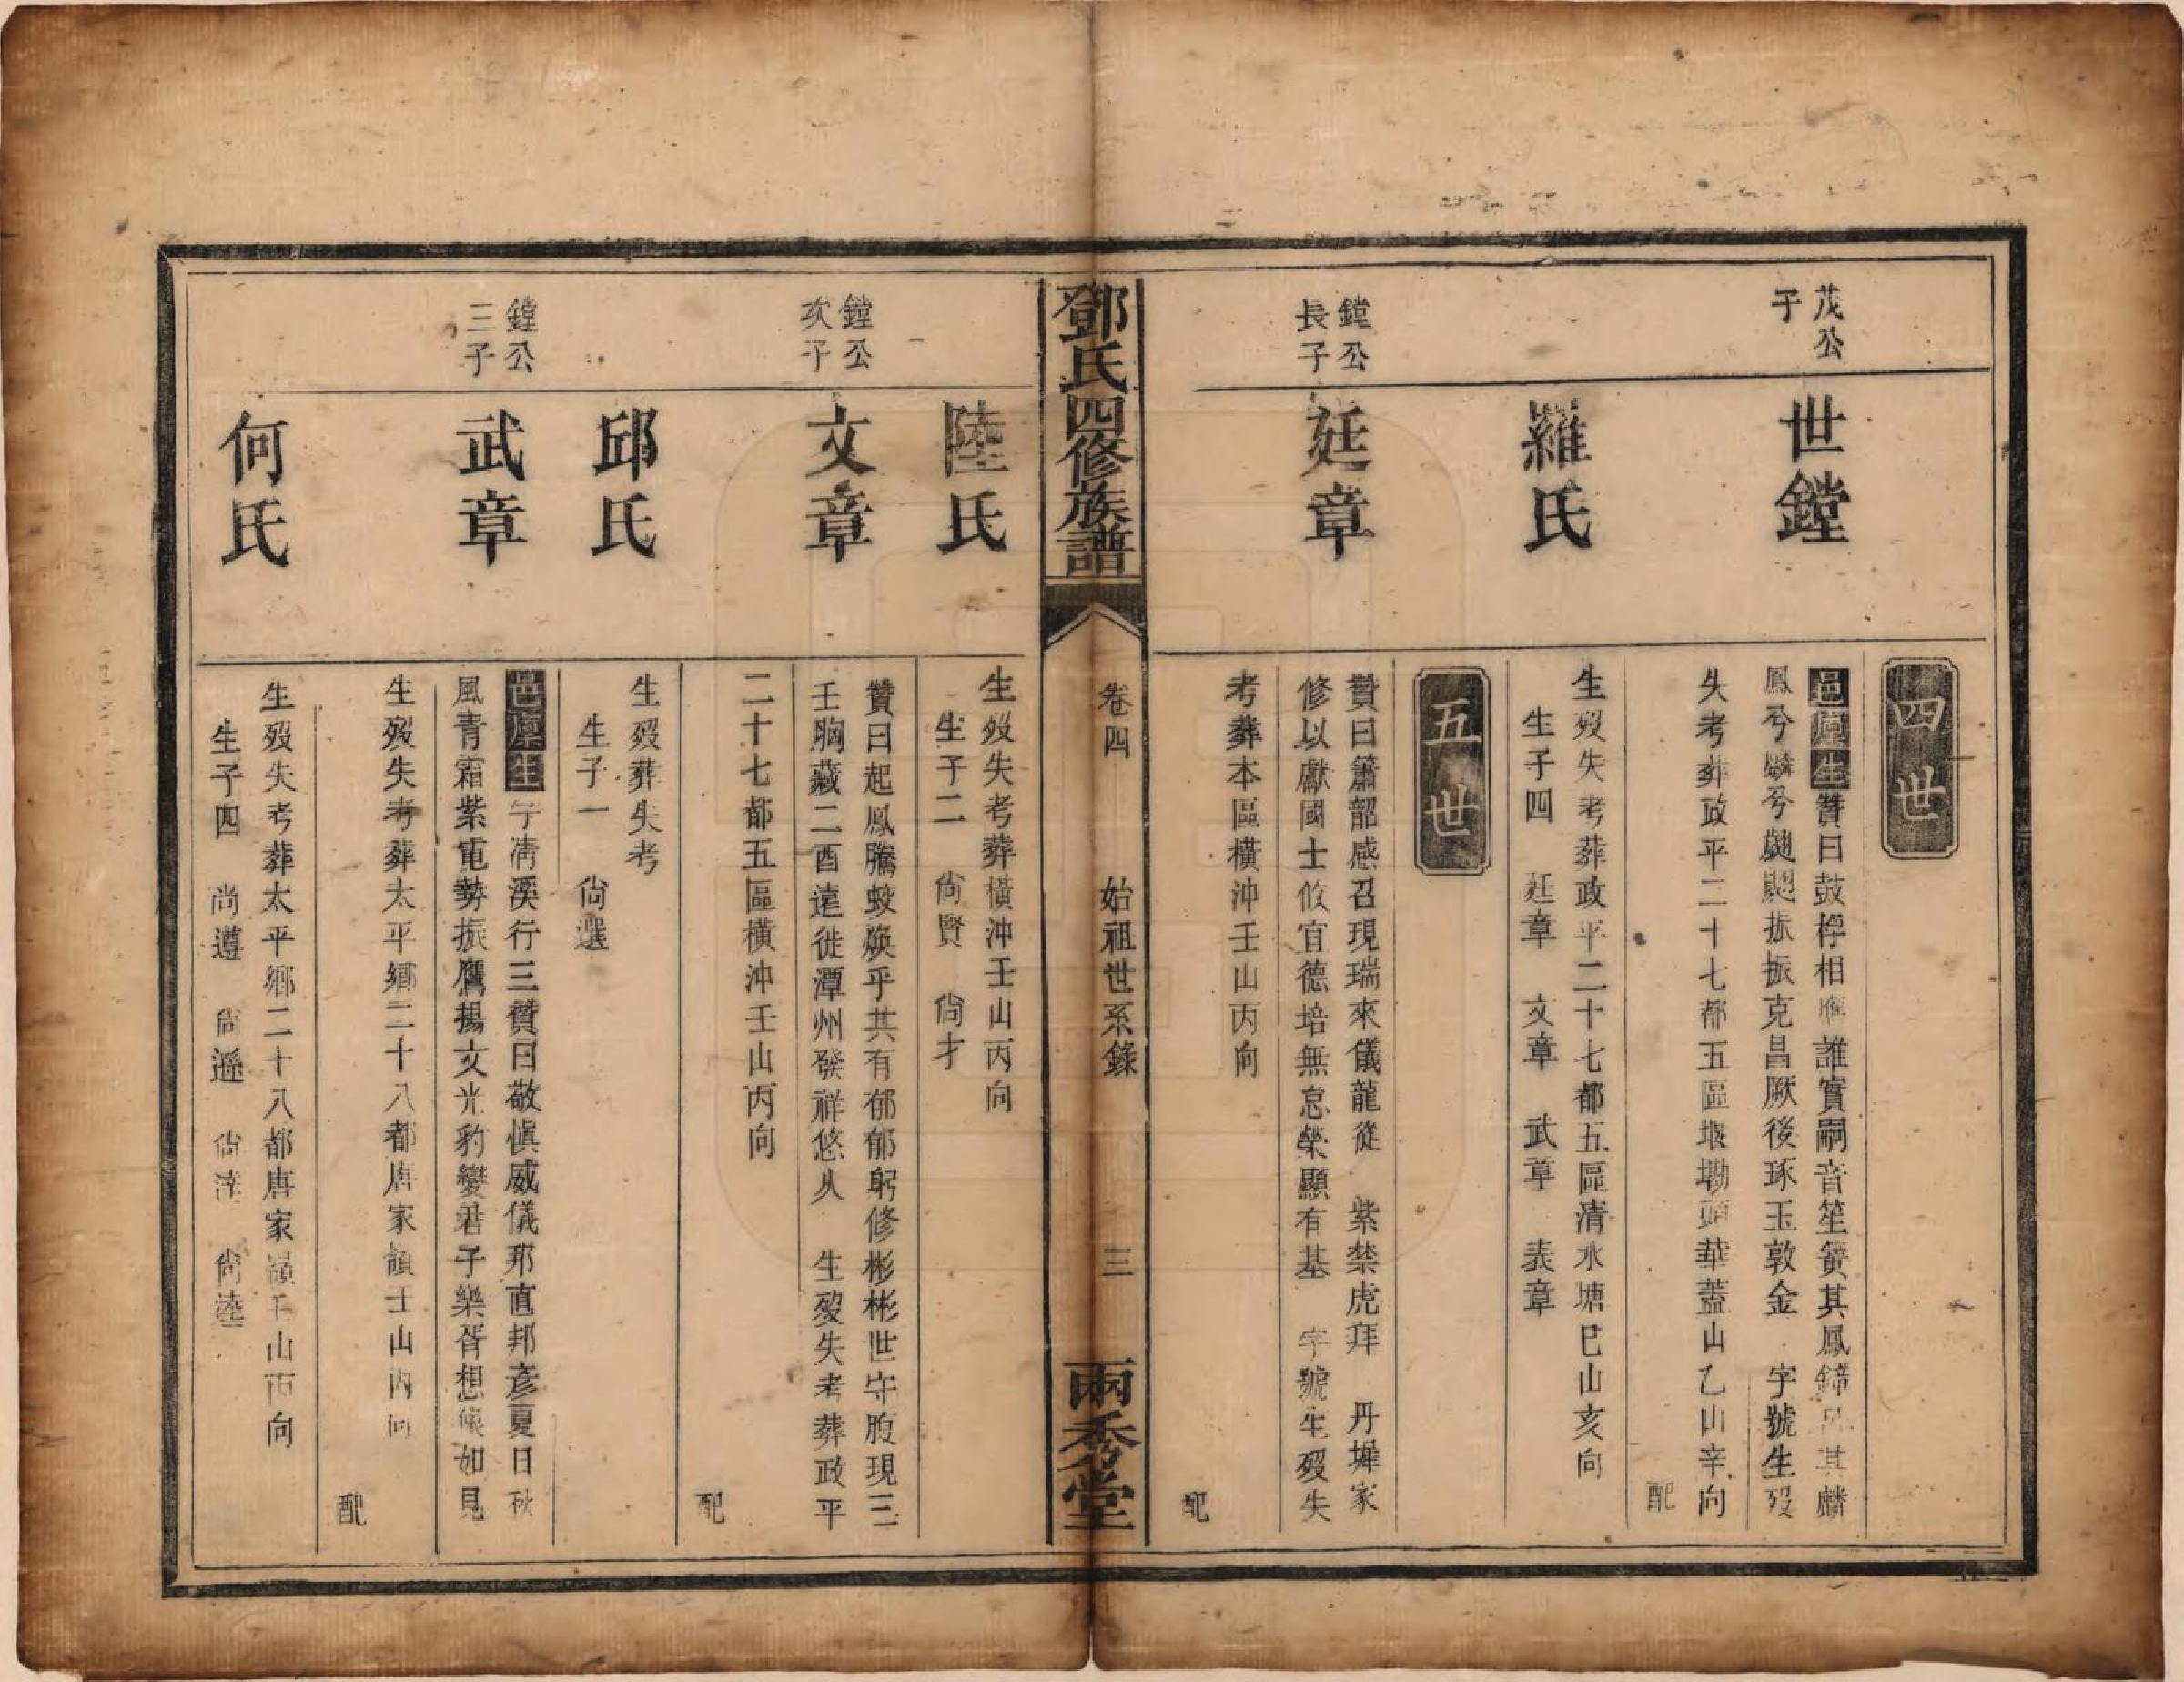 四世
茂公
子
世鏜
邑廩生贊曰鼓桴相應誰實嗣音笙簧其鳳鏘呂其麟
鳳兮麟兮翽翽振振克昌厥後琢玉敦金 字號生歿
失考葬政平二十七都五區堰塘頭華蓋山乙山辛向
配
羅氏
生歿失考葬政平二十七都五區清水塘巳山亥向
生子四 廷章 文章 武章 表章
五世
鏜公
長子
廷章
贊曰簫韶感召現瑞來儀龍從 紫禁虎拜 丹墀家
修以獻國士攸宜德培無怠榮顯有基 字號生歿失
考葬本區橫沖壬山丙向
配
鄧氏四修族譜
卷四 始祖世系錄 三
兩秀堂
陸氏
生歿失考葬橫沖壬山丙向
生子二 尙賢 尙才
鏜公
次子
文章
贊曰起鳳騰蛟煥乎其有郁郁躬修彬彬世守腹現三
壬胸藏二酉遠徙潭州發祥悠久 生歿失考葬政平
二十七都五區橫沖壬山丙向
配
邱氏
生歿葬失考
生子一 尙選
鏜公
三子
武章
邑廩生字淸溪行三贊曰敬愼威儀那直邦彥夏日秋
風青霜紫電勢振鷹揚文光豹變君子樂胥想像如見
生歿失考葬太平鄉二十八都唐家嶺壬山丙向
配
何氏
生歿失考葬太平鄉二十八都唐家嶺壬山丙向
生子四 尚遵 尙遜 尙達 尙陸